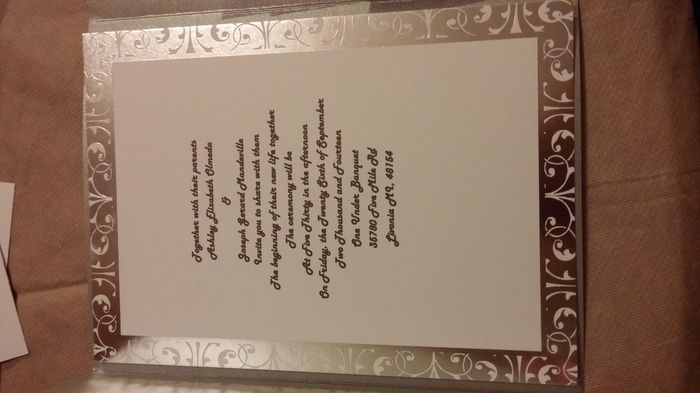 Together with their parents
Ashley Elizabeth Olmeda
&
Joseph Gerard Mandeville
Invite you to share with them
The beginning of their new life together
The ceremony will be
At Five Thirty in the afternoon
On Friday, the Twenty Sixth of September
Two Thousand and Fourteen
One Under Banquet
35780 Five Mile Rd
Livonia MI, 48154